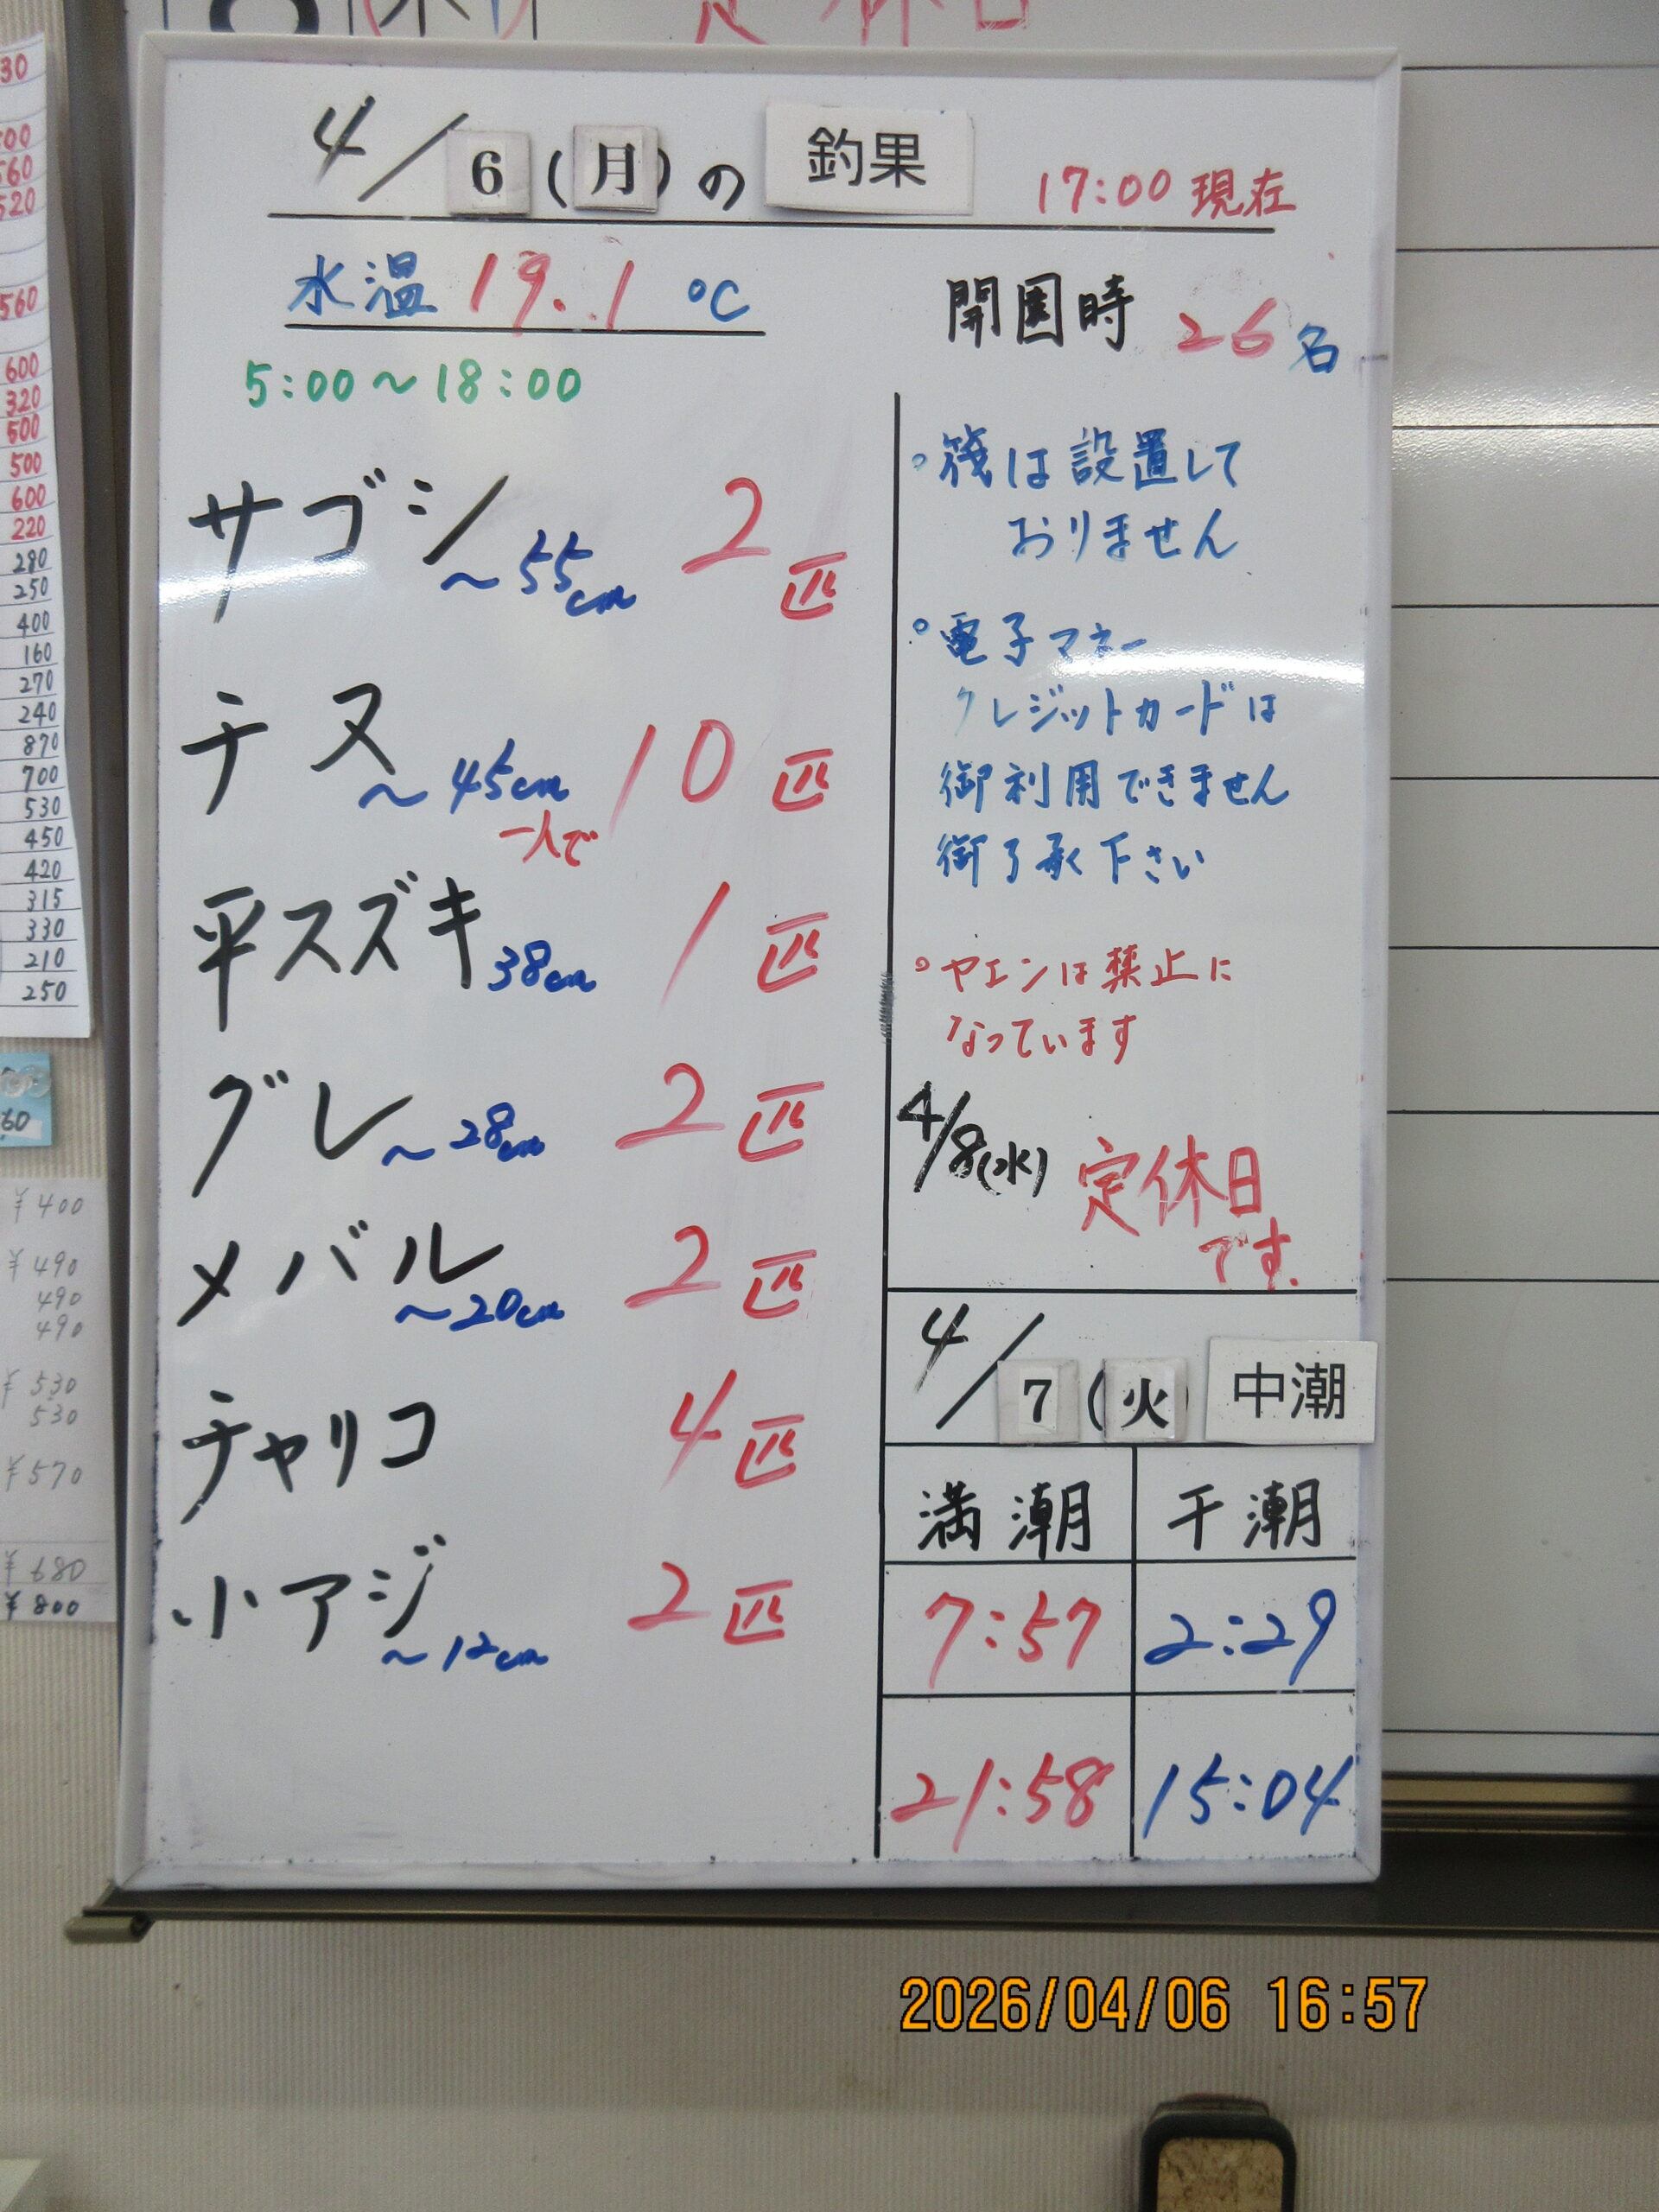 定休日
4/6(月)の 釣果 17:00 現在
水温 19.1 ℃
開園時 26名
5:00～18:00
サゴシ ～55cm 2匹
チヌ ～45cm 10匹
一人で
平スズキ 38cm 1匹
グレ ～28cm 2匹
メバル ～20cm 2匹
チャリコ 4匹
小アジ ～12cm 2匹
。筏は設置して
おりません
。電子マネー
クレジットカードは
御利用できません
御了承下さい
。ヤエンは禁止に
なっています
4/8(水) 定休日
です.
4/7(火) 中潮
満潮 干潮
7:57 2:29
21:58 15:04
600
320
500
500
600
220
280
250
400
160
270
240
870
700
530
450
420
315
330
210
250
¥400
¥490
490
490
¥530
530
¥570
¥680
¥800
2026/04/06 16:57